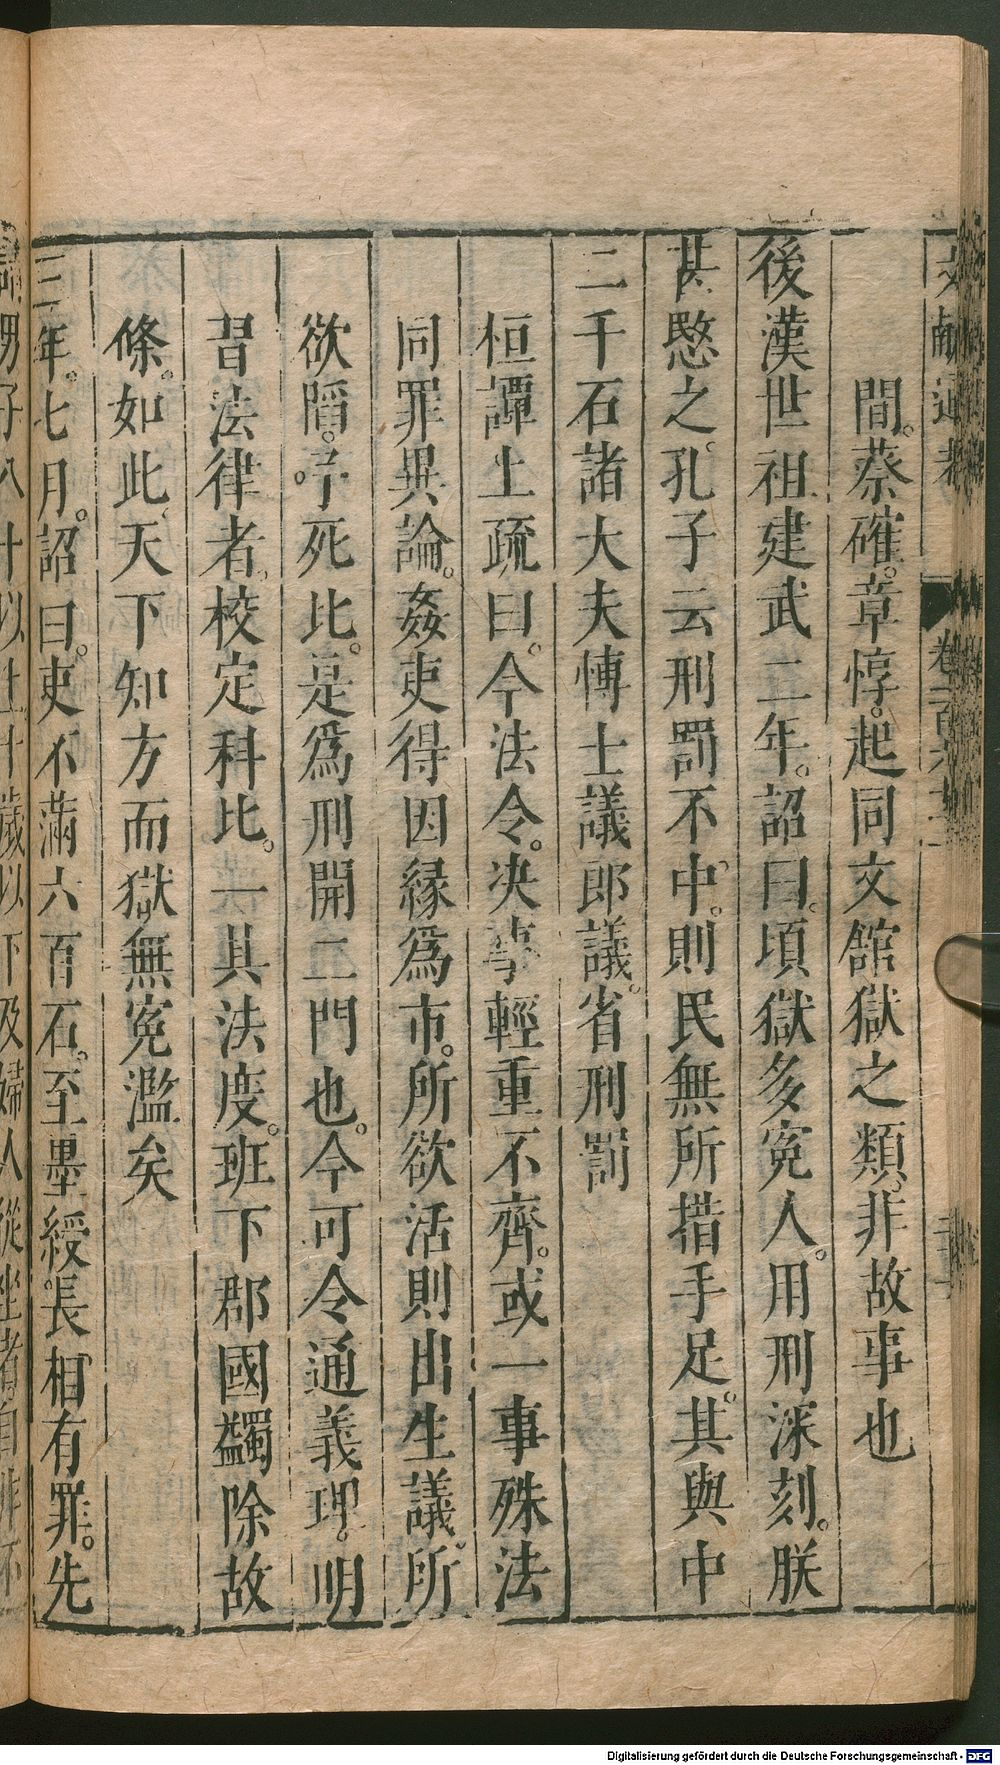 文獻通考
卷一百六十
間。蔡確。章惇。起同文舘獄之類。非故事也
後漢世祖建武二年。詔曰。頃獄多寃人。用刑深刻。朕
甚愍之。孔子云刑罰不中。則民無所措手足。其與中
二千石諸大夫博士議郎議。省刑罰
桓譚上疏曰。今法令。决事輕重不齊。或一事殊法
同罪異論。姦吏得因緣爲市。所欲活則出生議。所
欲陷。予死比。是爲刑開二門也。今可令通義理。明
習法律者。校定科比。一其法度。班下郡國蠲除故
條。如此、天下知方而獄無寃濫矣
三年。七月。詔曰。吏不滿六百石。至墨綬。長相有罪。先
請男子八十以上十歲以下及婦人從坐者自非不
Digitalisierung gefördert durch die Deutsche Forschungsgemeinschaft - DFG